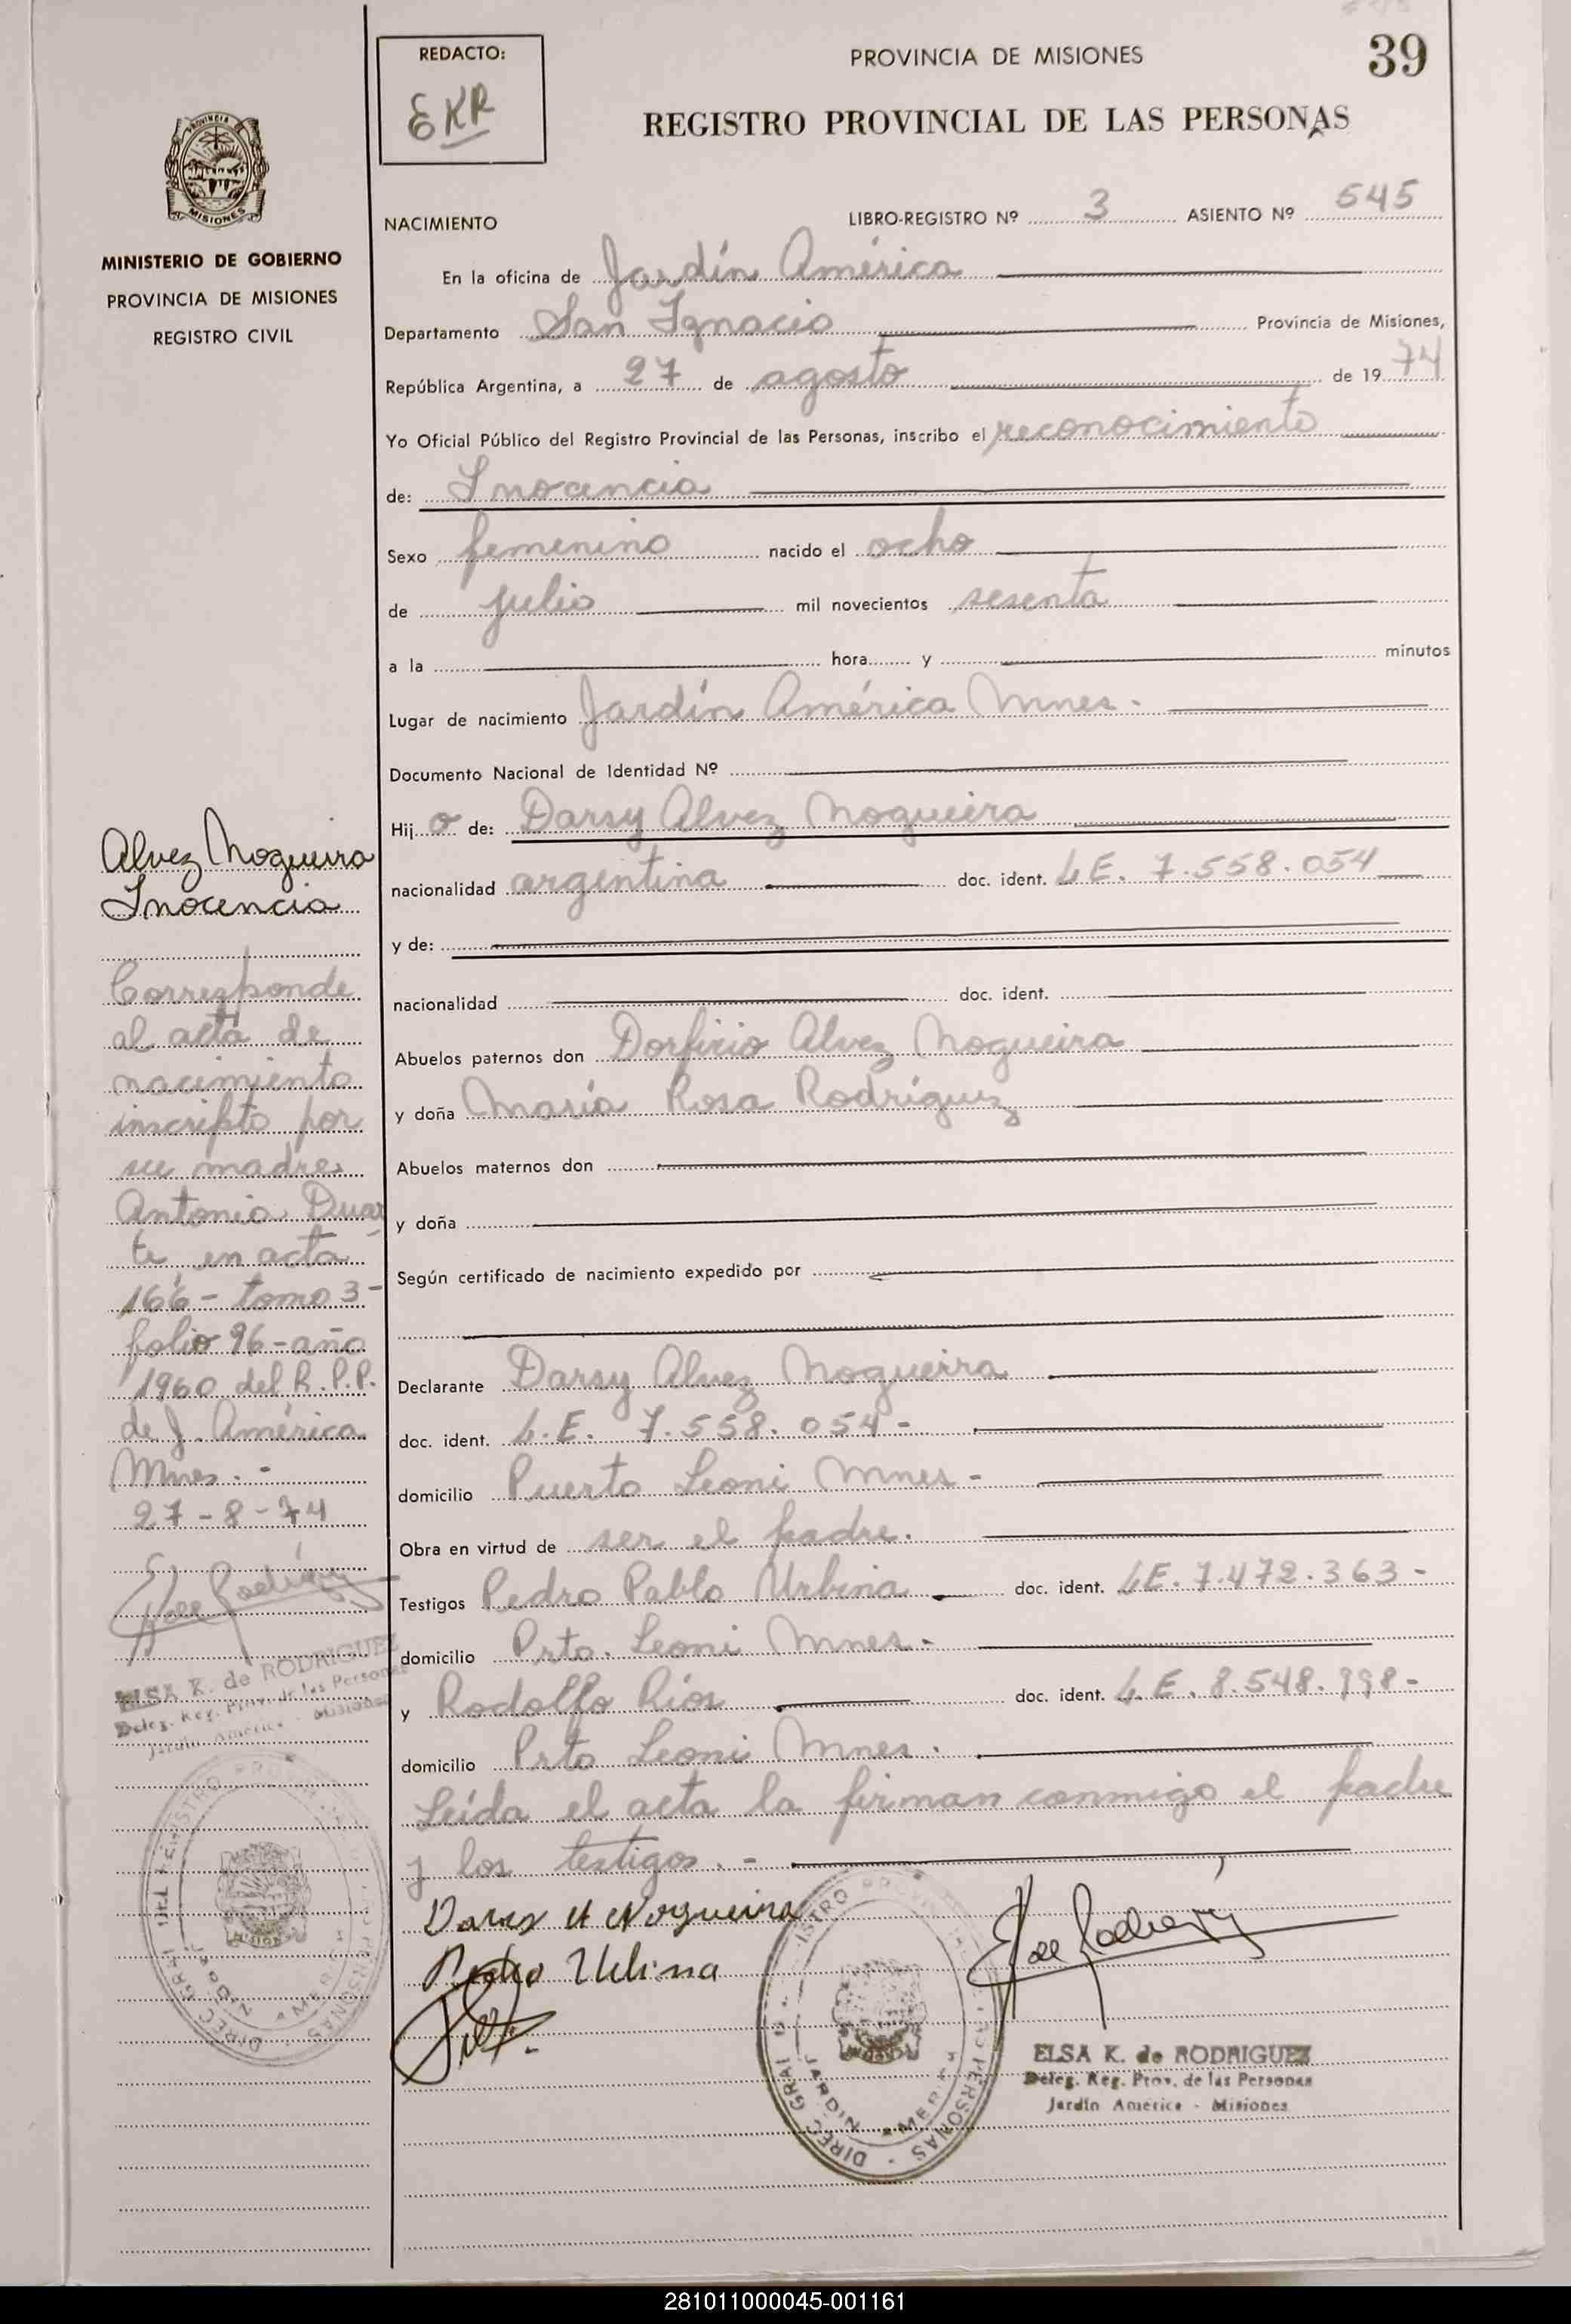 REDACTO:
EKR
PROVINCIA DE MISIONES
39
REGISTRO PROVINCIAL DE LAS PERSONAS
PROVINCIA
MISIONES
MINISTERIO DE GOBIERNO
PROVINCIA DE MISIONES
REGISTRO CIVIL
NACIMIENTO LIBRO-REGISTRO Nº 3 ASIENTO Nº 545
En la oficina de Jardín América
Departamento San Ignacio Provincia de Misiones,
República Argentina, a 27 de agosto de 1974
Yo Oficial Público del Registro Provincial de las Personas, inscribo el reconocimiento
de: Inocencia
Sexo femenino nacido el ocho
de julio mil novecientos sesenta
a la hora y minutos
Lugar de nacimiento Jardín América Mnes.
Documento Nacional de Identidad Nº
Hijo de: Darsy Alvez Nogueira
nacionalidad argentina doc. ident. L.E. 7.558.054
y de:
nacionalidad doc. ident.
Abuelos paternos don Dorfirio Alvez Nogueira
y doña María Rosa Rodríguez
Abuelos maternos don
y doña
Según certificado de nacimiento expedido por
Declarante Darsy Alvez Nogueira
doc. ident. L.E. 7.558.054-
domicilio Puerto Leoni Mnes-
Obra en virtud de ser el padre.
Testigos Pedro Pablo Urbina doc. ident. L.E. 7.472.363-
domicilio Prto. Leoni Mnes-
y Rodolfo Ríos doc. ident. L.E. 8.548.998-
domicilio Prto Leoni Mnes.
Leída el acta la firman conmigo el padre
y los testigos.-
Darcy A Nogueira
Pedro Urbina
ELSA K. de RODRIGUEZ
Deleg. Reg. Prov. de las Personas
Jardín América - Misiones
Alvez Nogueira
Inocencia
Corresponde
al acta de
nacimiento
inscripto por
su madre
Antonia Duar
te en acta
166- tomo 3-
folio 96-año
1960 del R.P.P.
de J. América
Mnes.-
27-8-74
ELSA K. de RODRIGUEZ
Deleg. Reg. Prov. de las Personas
Jardín América - Misiones
281011000045-001161